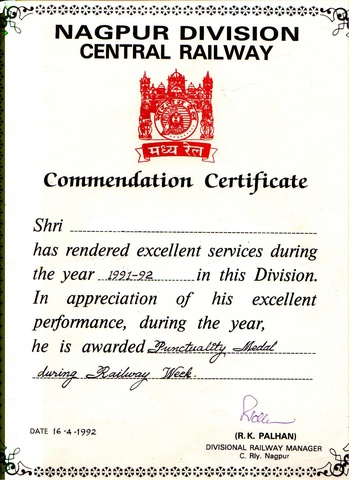 NAGPUR DIVISION
CENTRAL RAILWAY
मध्य रेल
Commendation Certificate
Shri
has rendered excellent services during
the year 1991-92 in this Division.
In appreciation of his excellent
performance, during the year,
he is awarded Punctuality Medal
during Railway Week.
DATE 16-4-1992
(R.K. PALHAN)
DIVISIONAL RAILWAY MANAGER
C. Rly. Nagpur